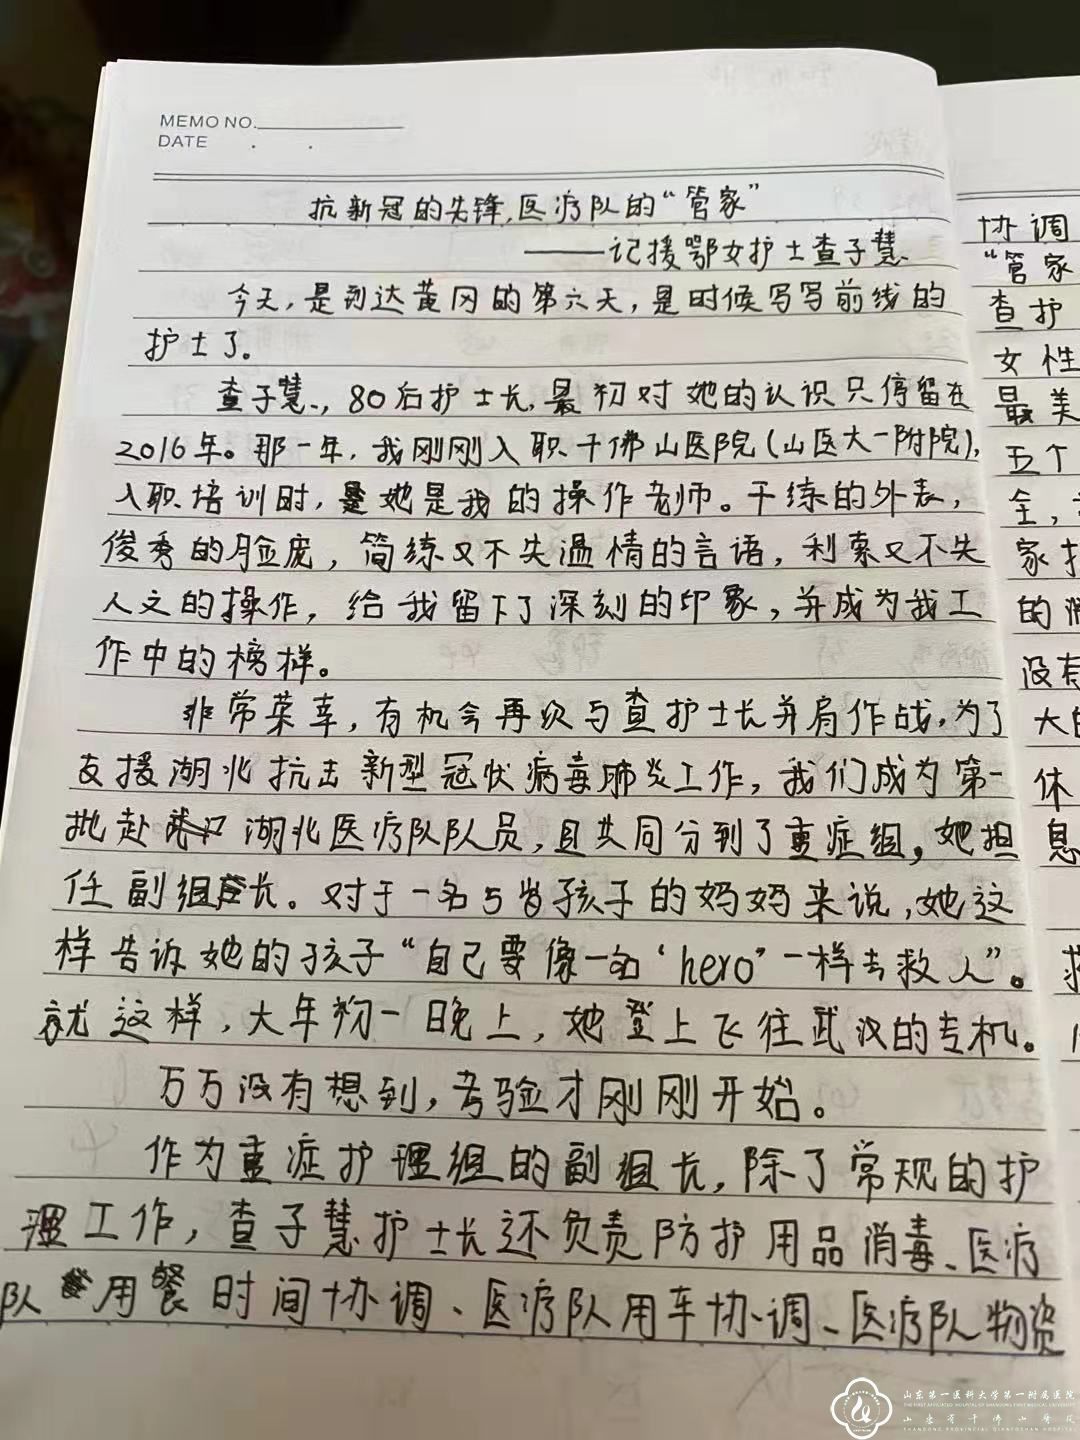 MEMO NO.
DATE . .
抗新冠的先锋,医疗队的“管家”
——记援鄂女护士查子慧
今天,是到达黄冈的第六天,是时候写写前线的
护士了。
查子慧,80后护士长,最初对她的认识只停留在
2016年。那一年,我刚刚入职千佛山医院(山医大一附院),
入职培训时,她是我的操作老师。干练的外表,
俊秀的脸庞,简练又不失温情的言语,利索又不失
人文的操作,给我留下了深刻的印象,并成为我工
作中的榜样。
非常荣幸,有机会再次与查护士长并肩作战,为了
支援湖北抗击新型冠状病毒肺炎工作,我们成为第一
批赴湖北医疗队队员,且共同分到了重症组,她担
任副组长。对于一名5岁孩子的妈妈来说,她这
样告诉她的孩子“自己要像一名‘hero”一样去救人”。
就这样,大年初一晚上,她登上飞往武汉的专机。
万万没有想到,考验才刚刚开始。
作为重症护理组的副组长,除了常规的护
理工作,查子慧护士长还负责防护用品消毒、医疗
队用餐时间协调、医疗队用车协调、医疗队物资
协调
“管家
查护
女性
最美
五个
全,
家
的
没有
大
休
息
山东第一医科大学第一附属医院
THE FIRST AFFILIATED HOSPITAL OF SHANDONG FIRST MEDICAL UNIVERSITY
山东省千佛山医院
SHANDONG PROVINCIAL QIANFOSHAN HOSPITAL